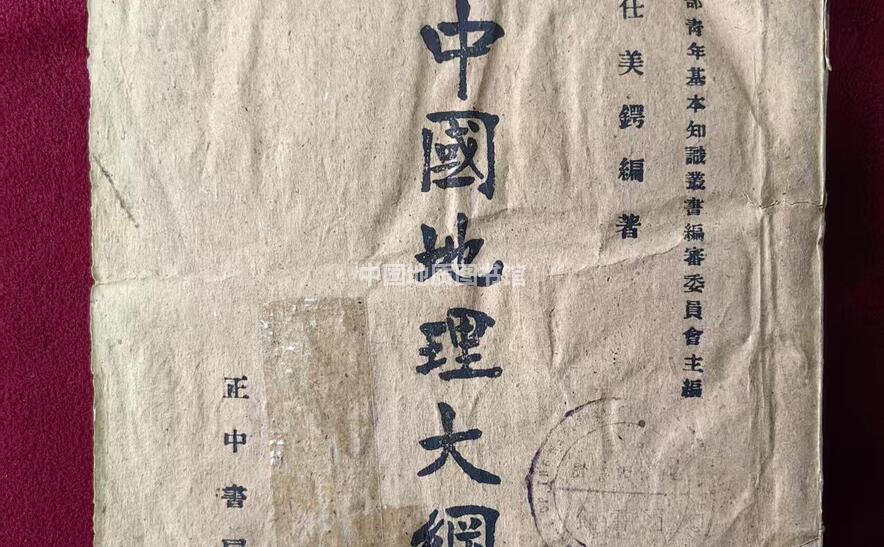 部青年基本知識叢書編審委員會主編
任美鍔編著
中國地理大綱
正中書局
中國地质图书馆